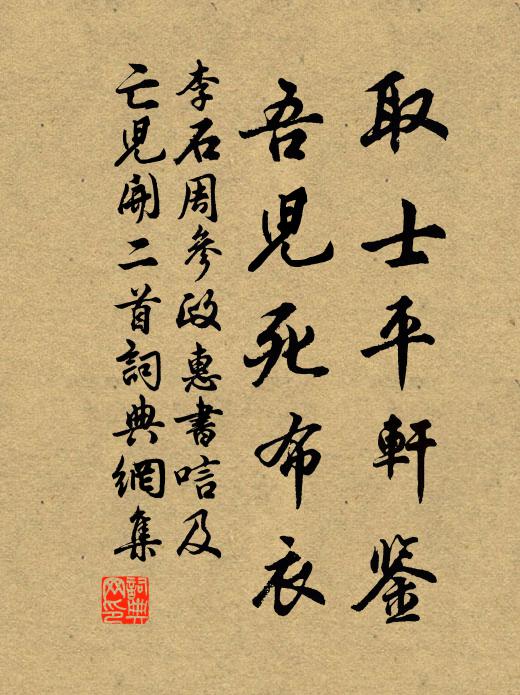 取士平軒鉴
吾児死布衣
李石周參政惠書唁及
亡児開二首詞典網集
詞典網印